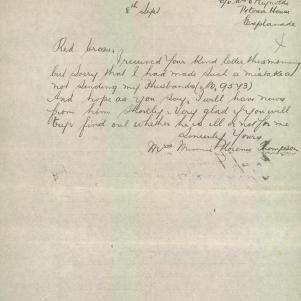 c/o Mrs Reynolds
Potson House
Esplanade
8th Sept
Red Cross.
I received your kind letter this morning
but sorry that I had made such a mistake at
not sending my Husbands (No, 9573)
And hope as you say, I will have news
from him Shortly. Very glad if you will
try & find out whether he is ill or not for me
Sincerely Yours
Mrs Minnie Florence Thompson